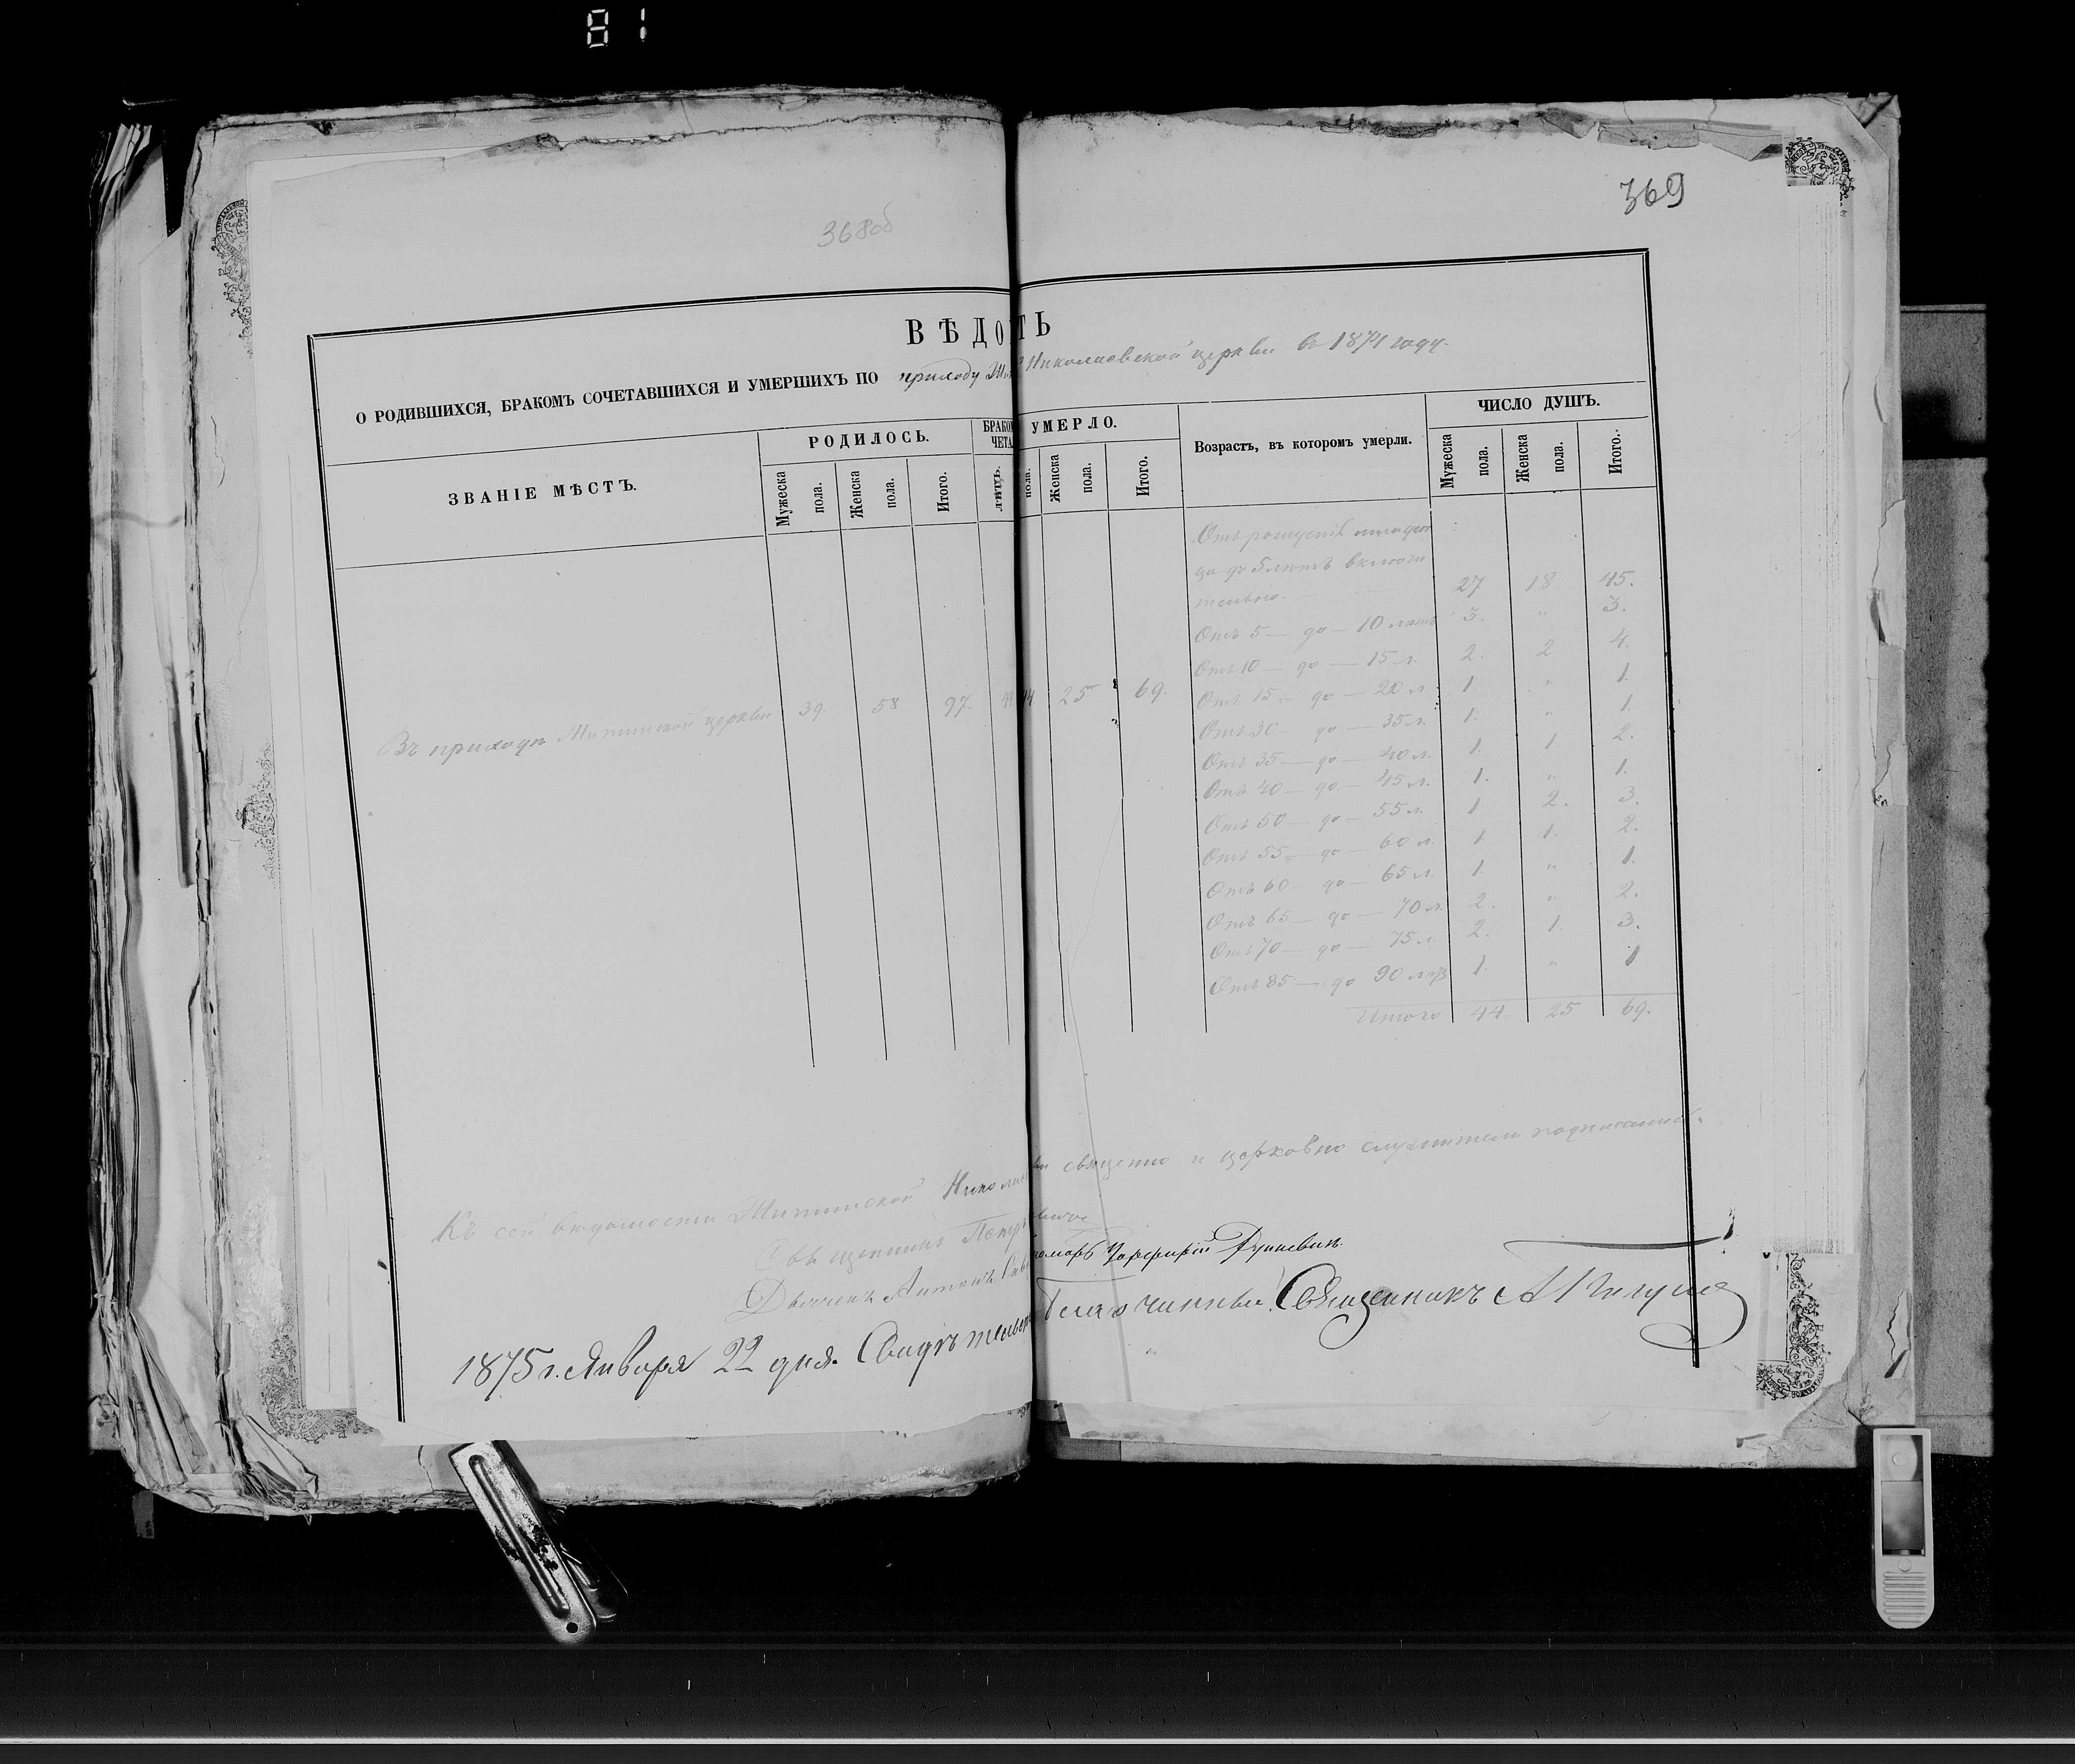 81
368об
369
ВѢДО ТЬ
О РОДИВШИХСЯ, БРАКОМЪ СОЧЕТАВШИХСЯ И УМЕРШИХЪ ПО приходу Николаевской церкви въ 1874 году.
ЗВАНІЕ МѢСТЪ.
РОДИЛОСЬ.
Мужеска пола.
Женска пола.
Итого.
БРАКОМ
ЧЕТА
УМЕРЛО.
пола.
Женска пола.
Итого.
Возрастъ, въ которомъ умерли.
ЧИСЛО ДУШЪ.
Мужеска пола.
Женска пола.
Итого.
Въ приходѣ церкви 39. 58 97. 44 25 69.
Отъ рожденія
ца до 5 лѣтъ включи
тельно. 27 18 45.
Отъ 5 — до — 10 лѣтъ 3. " 3.
Отъ 10 — до — 15 л. 2. 2 4.
Отъ 15 — до — 20 л. 1. " 1.
Отъ 30 — до — 35 л. 1. " 1.
Отъ 35 — до — 40 л. 1. 1. 2.
Отъ 40 — до — 45 л. 1. " 1.
Отъ 50 — до — 55 л. 1 2. 3.
Отъ 55 — до — 60 л. 1. 1. 2.
Отъ 60 — до — 65 л. 1. " 1.
Отъ 65 — до — 70 л. 2. " 2.
Отъ 70 — до — 75 л. 2. 1. 3.
Отъ 85 — до 90 лѣтъ 1. " 1
Итого 44. 25 69.
Къ сей вѣдомости Никола священно и церковно служители подписались.
Священникъ Петръ
Дьячекъ Антонъ номарь Порфирій
1875 г. Января 22 дня. Свидѣтельс Благочинный Священникъ А